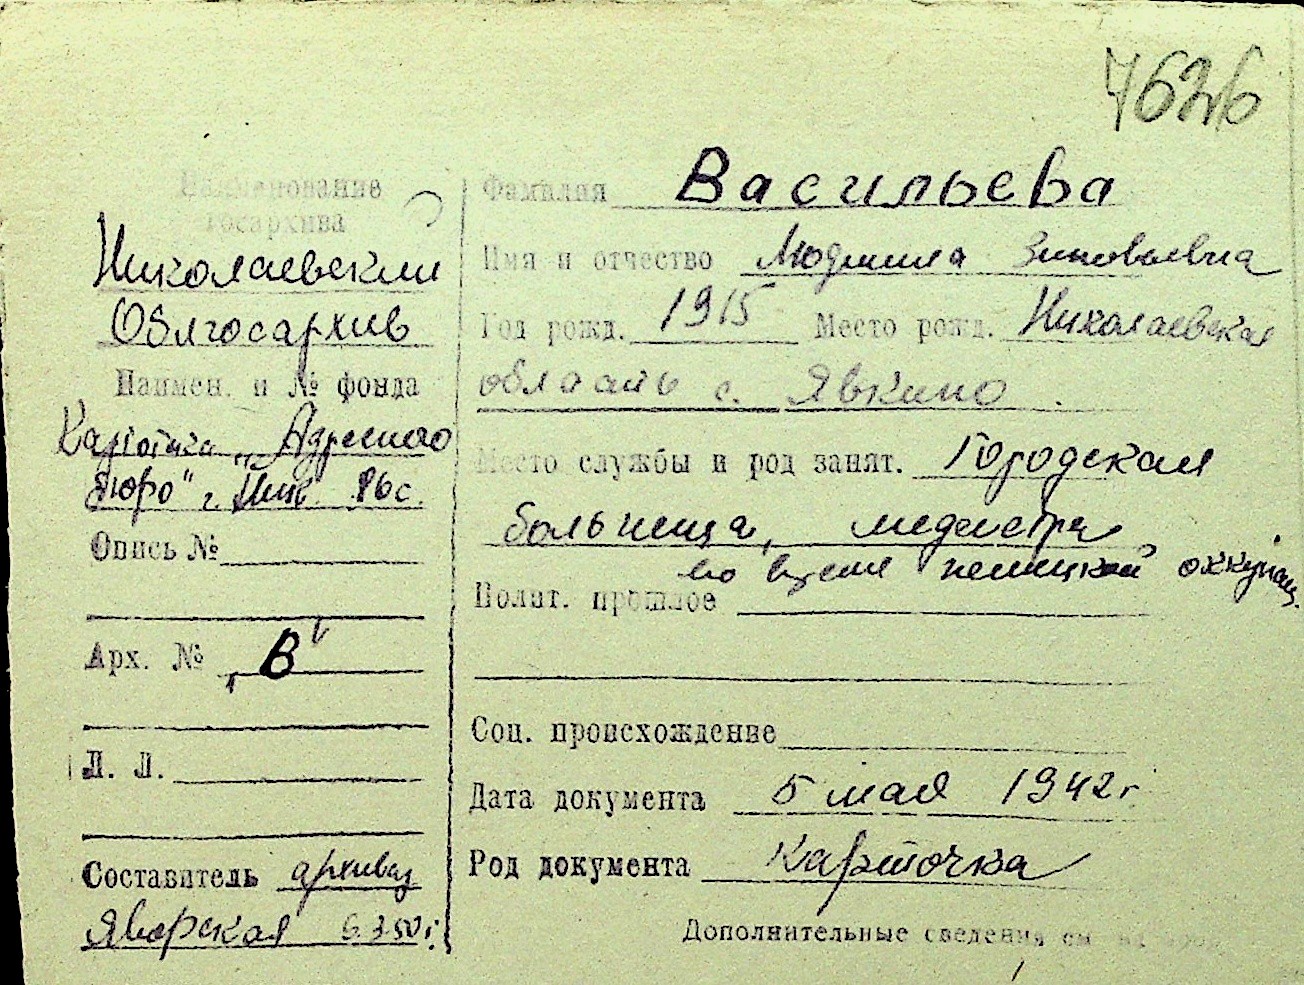 7626
Наименование
госархива
Николаевский
Облгосархив
Наимен. и № фонда
Картотека „Адресного
бюро" г. Ник.
Опись №
Арх. № „В"
Л. Л.
Составитель архивар
Яворская 6.3.50 г.
Фамилия Васильева
Имя и отчество Людмила Зиновьевна
Год рожд. 1915 Место рожд. Николаевская
область с. Явкино
Место службы и род занят. Городская
больница, медсестра
во время немецкой оккупац.
Полит. прошлое
Соц. происхождение
Дата документа 5 мая 1942 г.
Род документа Карточка
Дополнительные сведения см. на обор.